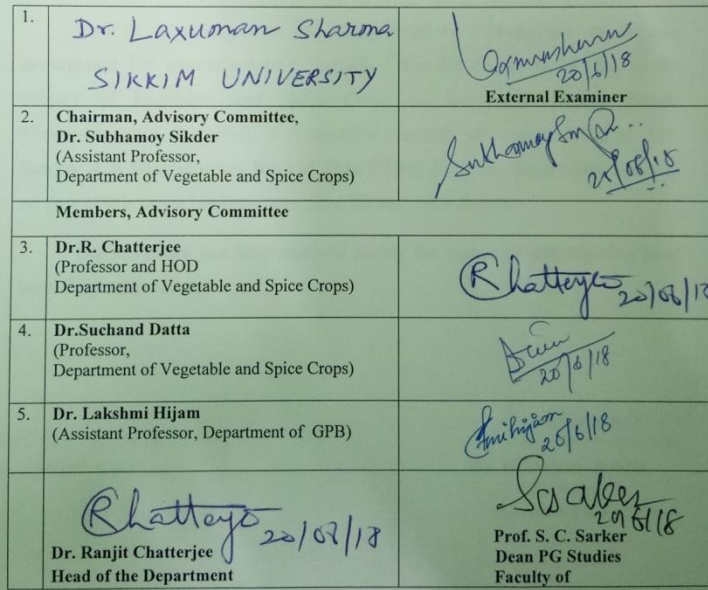 1. Dr. Laxuman Sharma
SIKKIM UNIVERSITY
20/6/18
External Examiner
2. Chairman, Advisory Committee,
Dr. Subhamoy Sikder
(Assistant Professor,
Department of Vegetable and Spice Crops)
20/06/18
Members, Advisory Committee
3. Dr.R. Chatterjee
(Professor and HOD
Department of Vegetable and Spice Crops)
RChatterjee 20/06/18
4. Dr.Suchand Datta
(Professor,
Department of Vegetable and Spice Crops)
20/6/18
5. Dr. Lakshmi Hijam
(Assistant Professor, Department of GPB)
20/6/18
RChatterjee 20/06/18
Dr. Ranjit Chatterjee
Head of the Department
20/6/18
Prof. S. C. Sarker
Dean PG Studies
Faculty of